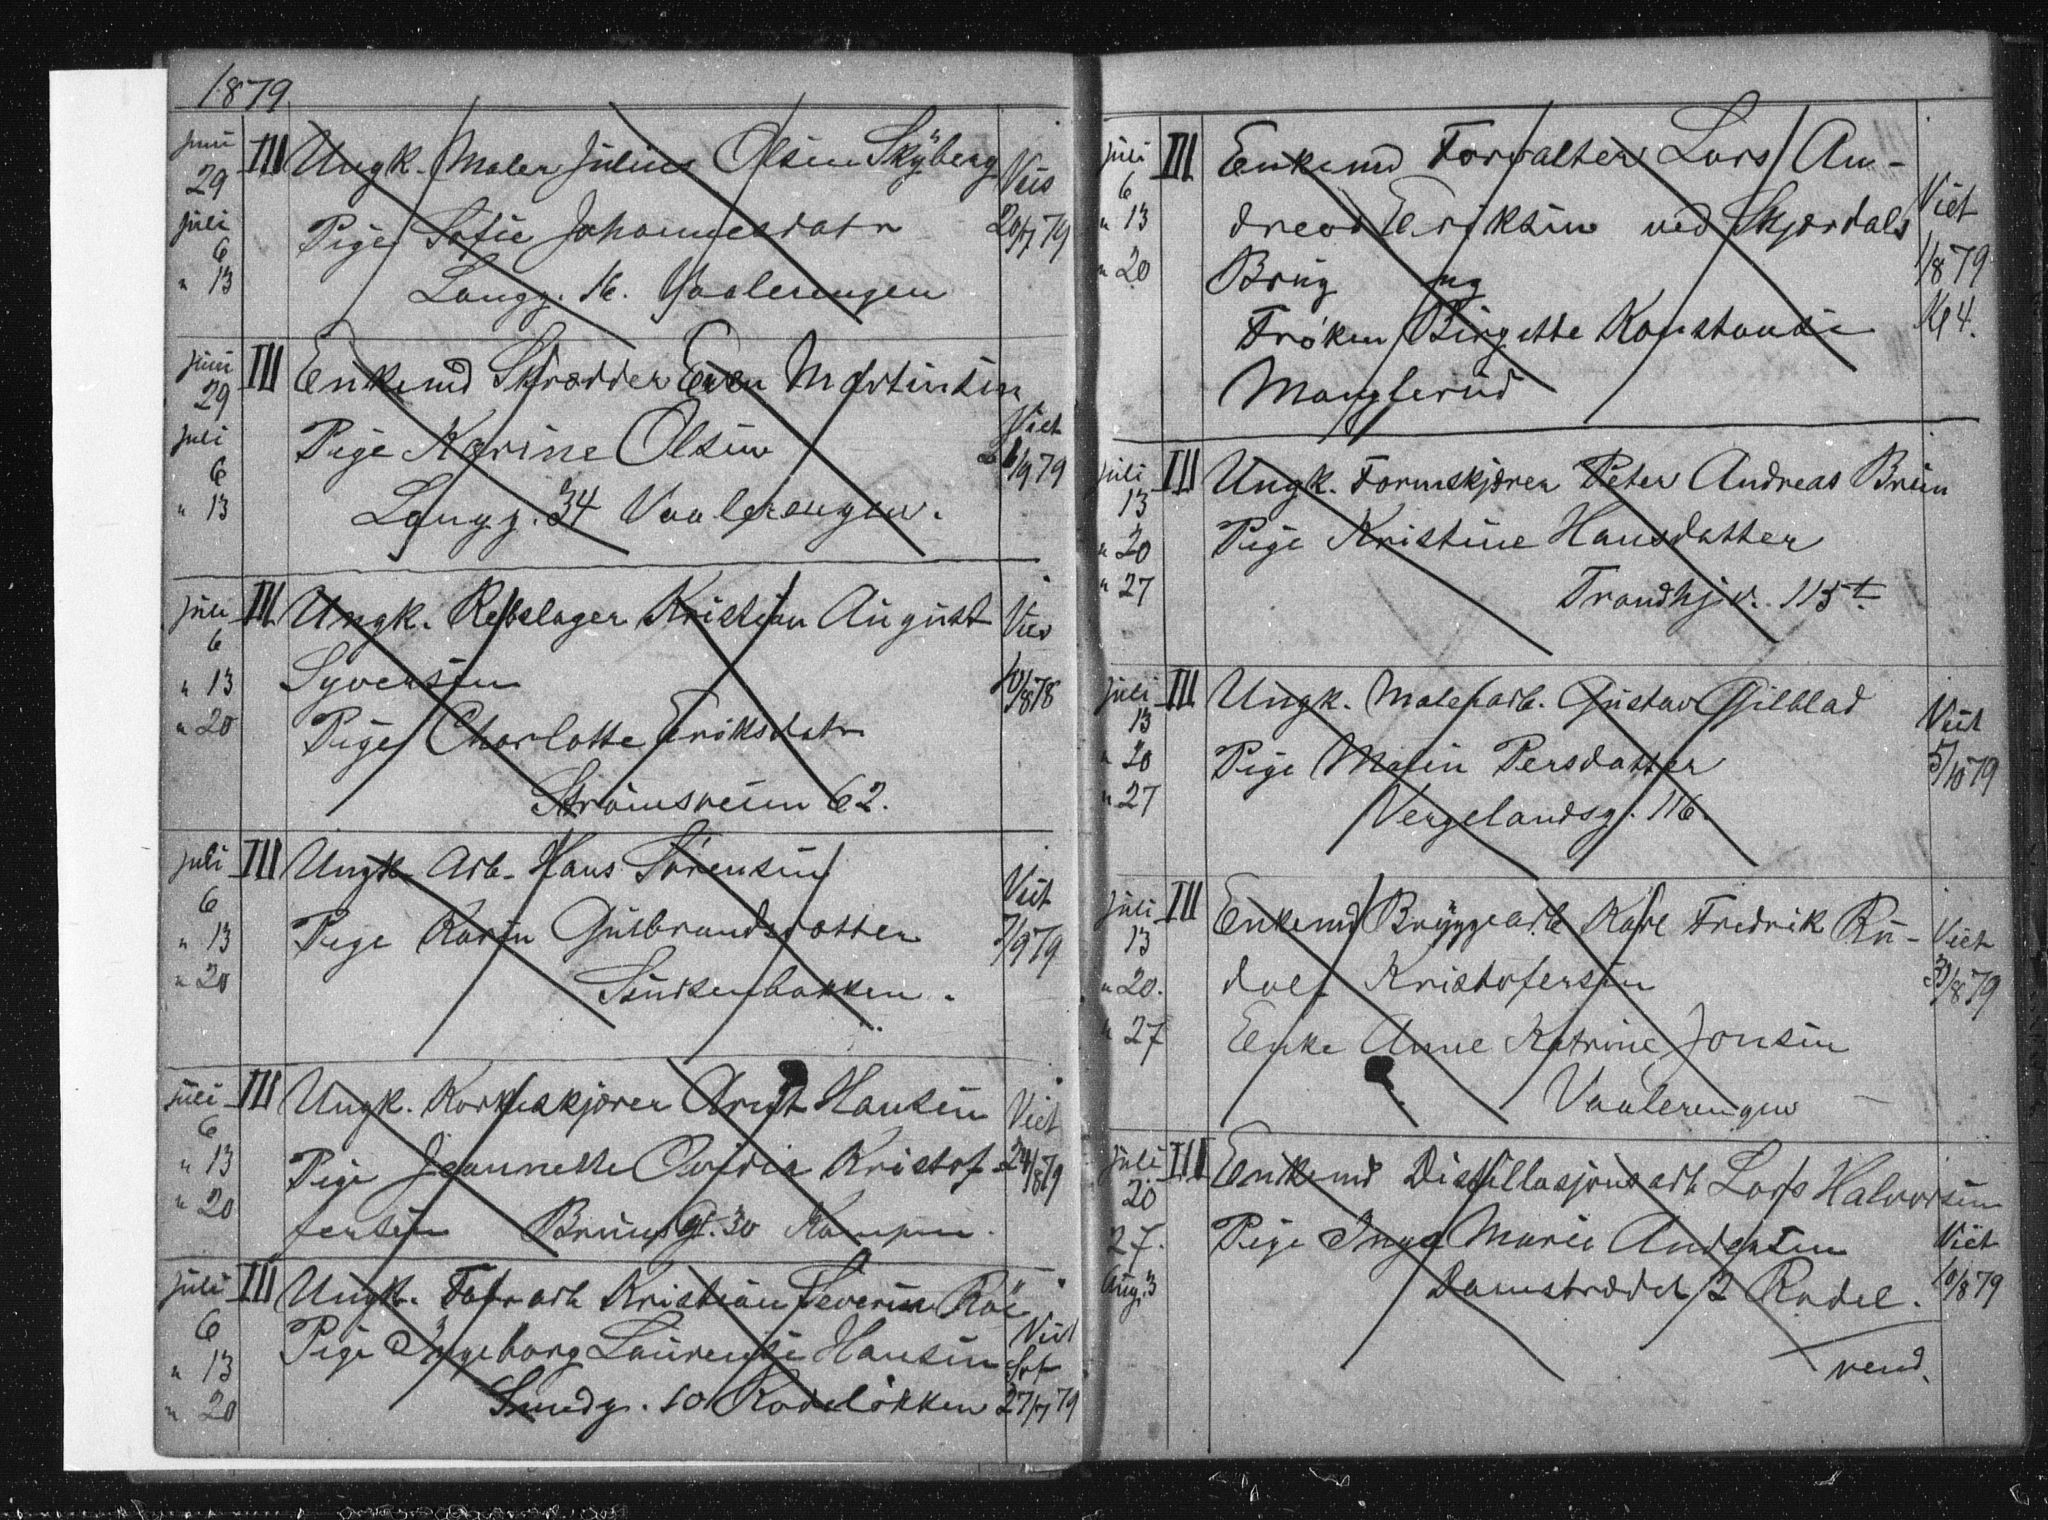 1879
Juni 29 Juli 6 " 13 III Ungk. Maler Julius Olsen Skÿberg Viet 20/7 79
Pige Sofie Johannesdatr
Langg. 16. Vaalerengen
Juni 29 Juli 6 " 13 III Enkemd Skrædder Even Martinsen Viet /9 79
Pige Karine Olsen
Langg. 34 Vaalerengen.
Juli 6 " 13 " 20 III Ungk. Rebslager Kristian August Viet 10/8 78
Syversen
Pige Charlotte Eriksdatr
Strømsveien 62.
Juli 6 " 13 " 20 III Ungk. Arb. Hans Sørensen Viet 7/9 79
Pige Karen Gulbrandsdatter
Simensenbakken.
Juli 6 " 13 " 20 III Ungk. Korkeskjærer Arnt Hansen Viet 24/8 79
Pige Jeannette Ovidia Kristof-
fersen Bruns Gt. 30 Kampen.
Juli 6 " 13 " 20 III Ungk. Fabr arb Kristian Severin Roe Viet 27/7 79
Pige Ingeborg Laurense Hansen
Smedg. 10 Rodeløkken
Juli 6 " 13 " 20 III Enkemd Forvalter Lars An- Viet 1/8 79 Kl 4.
dreas Eriksen ved Skjærdals
Brug og
Frøken Birgitte Konstanse
Manglerud
Juli 13 " 20 " 27 III Ungk. Formskjærer Peter Andreas Bruun
Pige Kristine Hansdatter
Trondhj v. 115 t
Juli 13 " 20 " 27 III Ungk. Malerarb. Gustav Gilblad Viet 5/10 79
Pige Malin Persdatter
Vergelandsg. 116.
Juli 13 " 20. " 27 III Enkemd Bryggearb Karl Fredrik Ru- Viet 31/8 79
dolf Kristofersen
Enke Anne Katrine Jonsen
Vaalerengen
Juli 20 27. Aug. 3 III Enkemd Distillasjons arb Lars Halvorsen Viet 10/8 79
Pige Inga Marie Andersen
Damstrædet 2 Rodel.
vend.